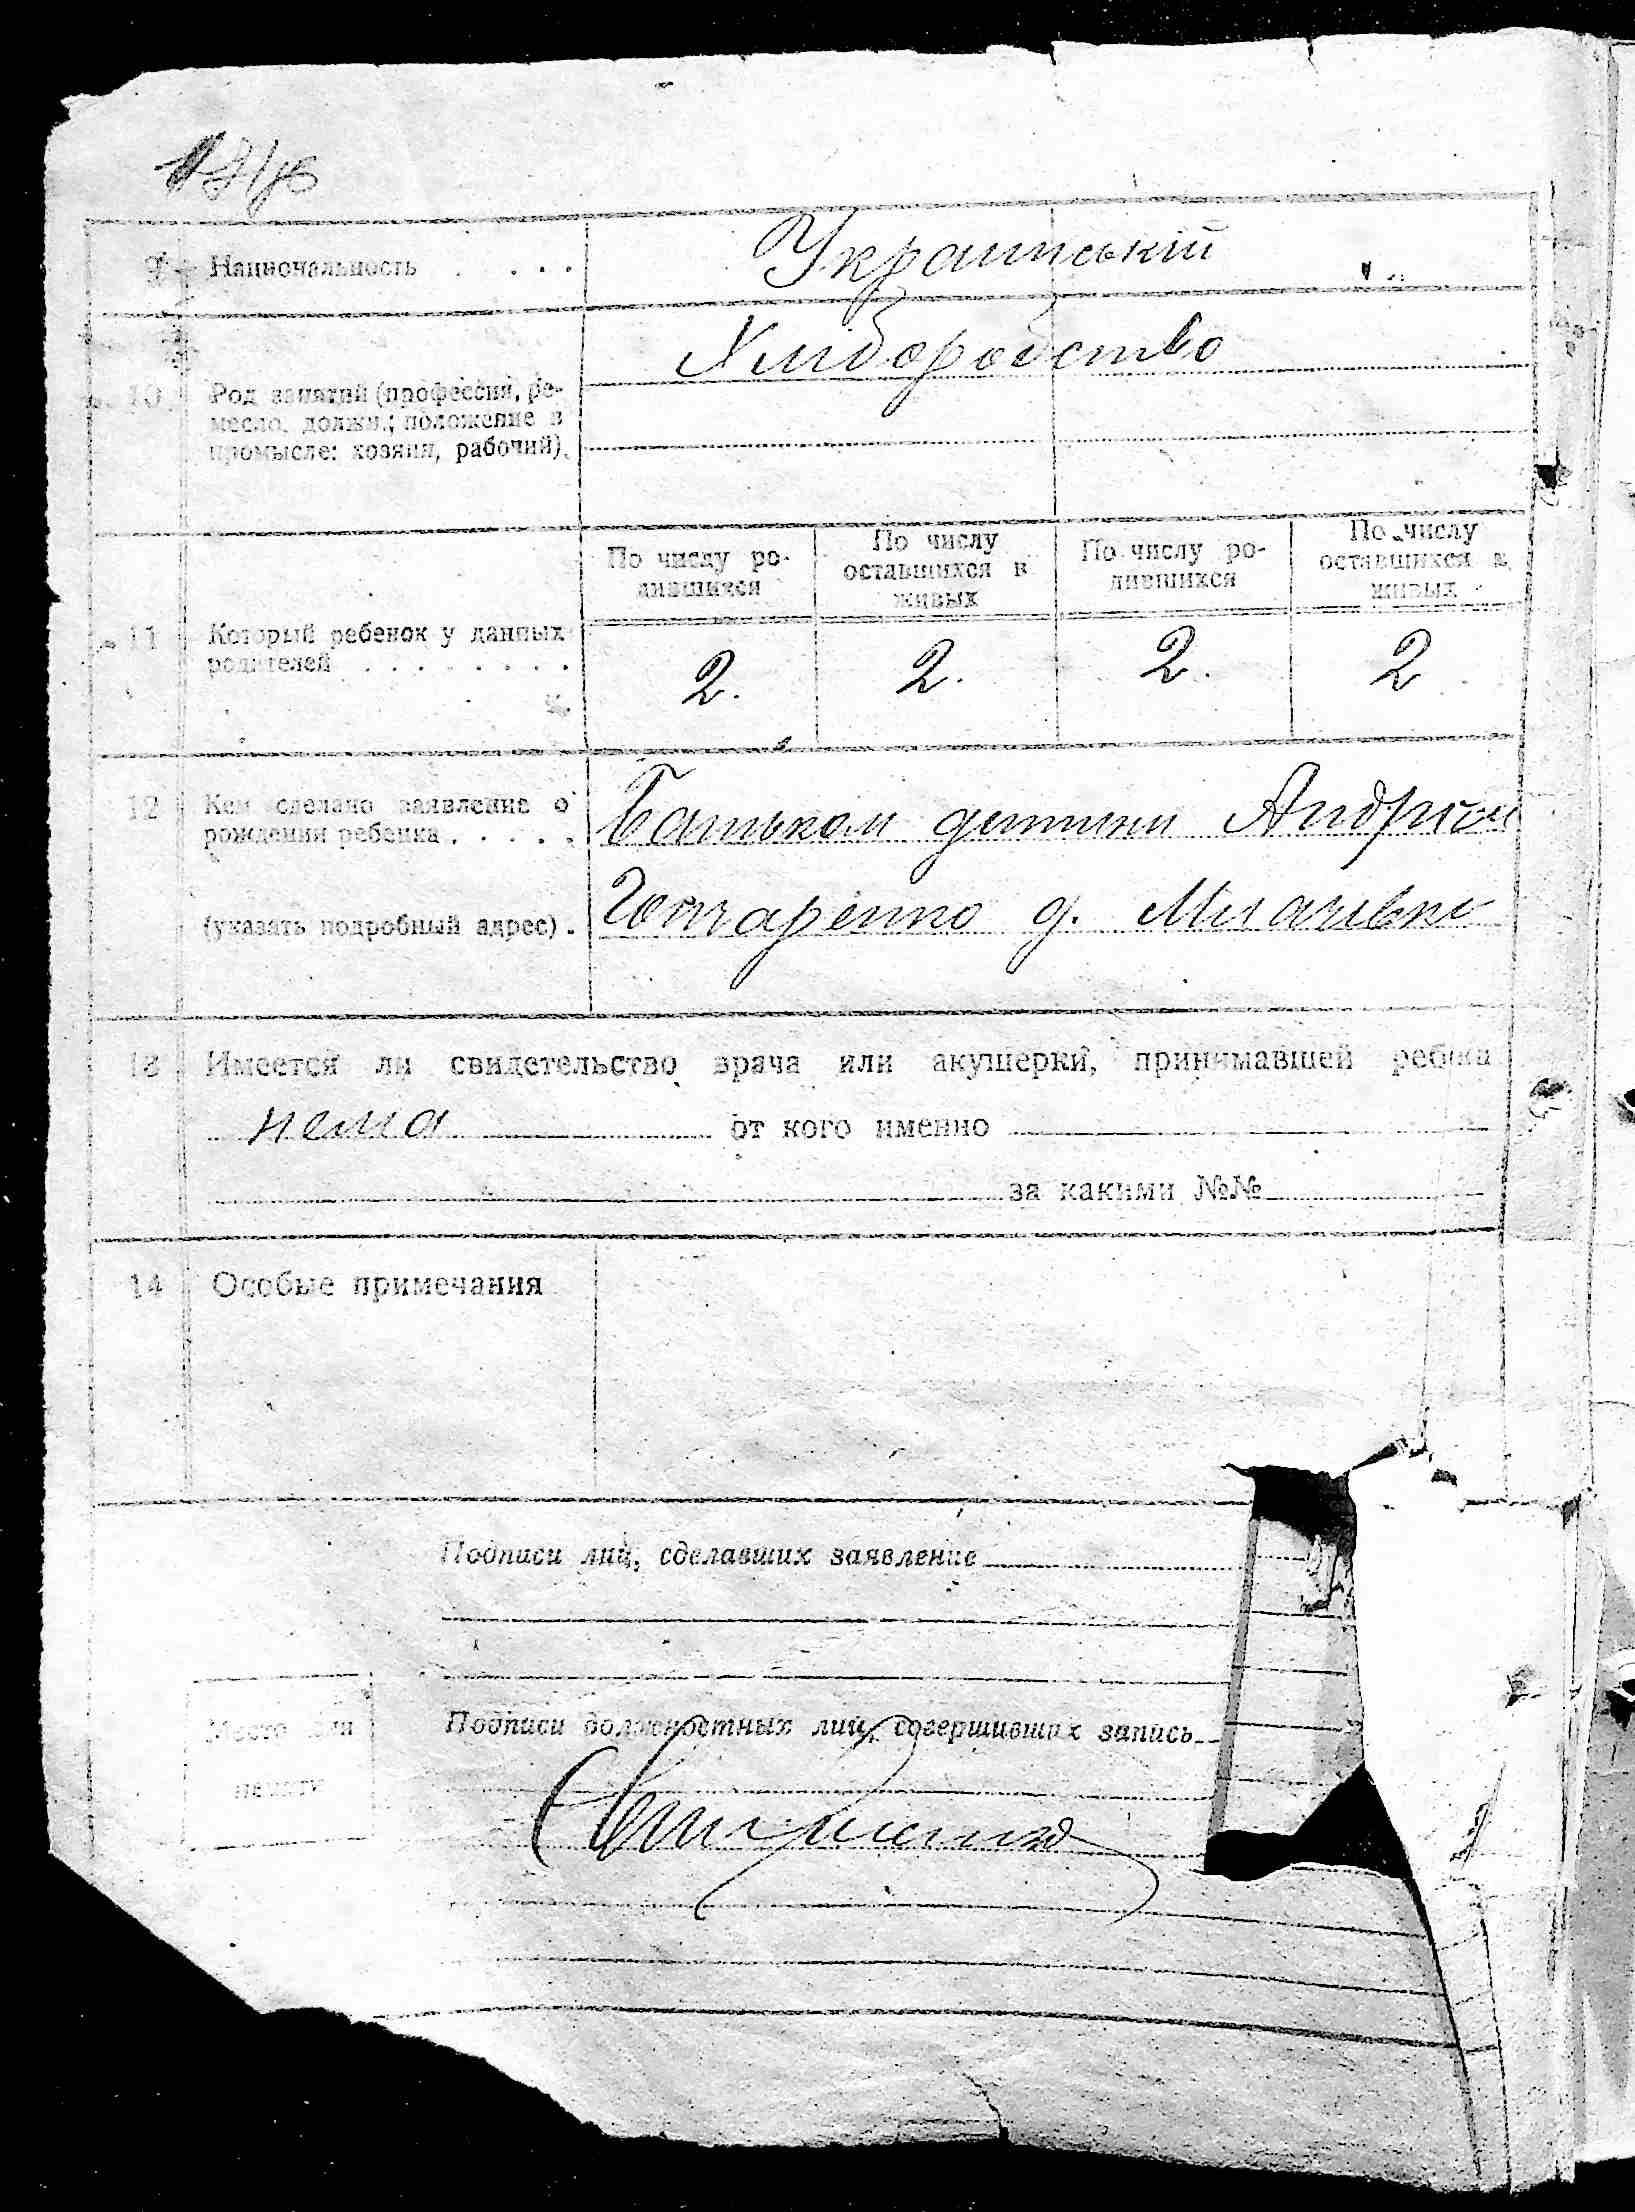 9 Национальность . . . . Украинській
Хлибородство
10 Род занятий (профессия, ре-
месло, должн.; положение в
промысле: хозяин, рабочий).
По числу ро-
дившихся
По числу
оставшихся в
живых
По числу ро-
дившихся
По числу
оставшихся в
живых
11 Который ребенок у данных
родителей . . . . . . . .
2. 2. 2. 2
12 Кем сделано заявление о
рождении ребенка . . . . .
Батьком дитини Андрієм
(указать подробный адрес) .
Гончаренко д.
13 Имеется ли свидетельство врача или акушерки, принимавшей ребенка
нема от кого именно
за какими №№
14 Особые примечания
Подписи лиц, сделавших заявление
Место для
печати
Подписи должностных лиц, совершивших запись